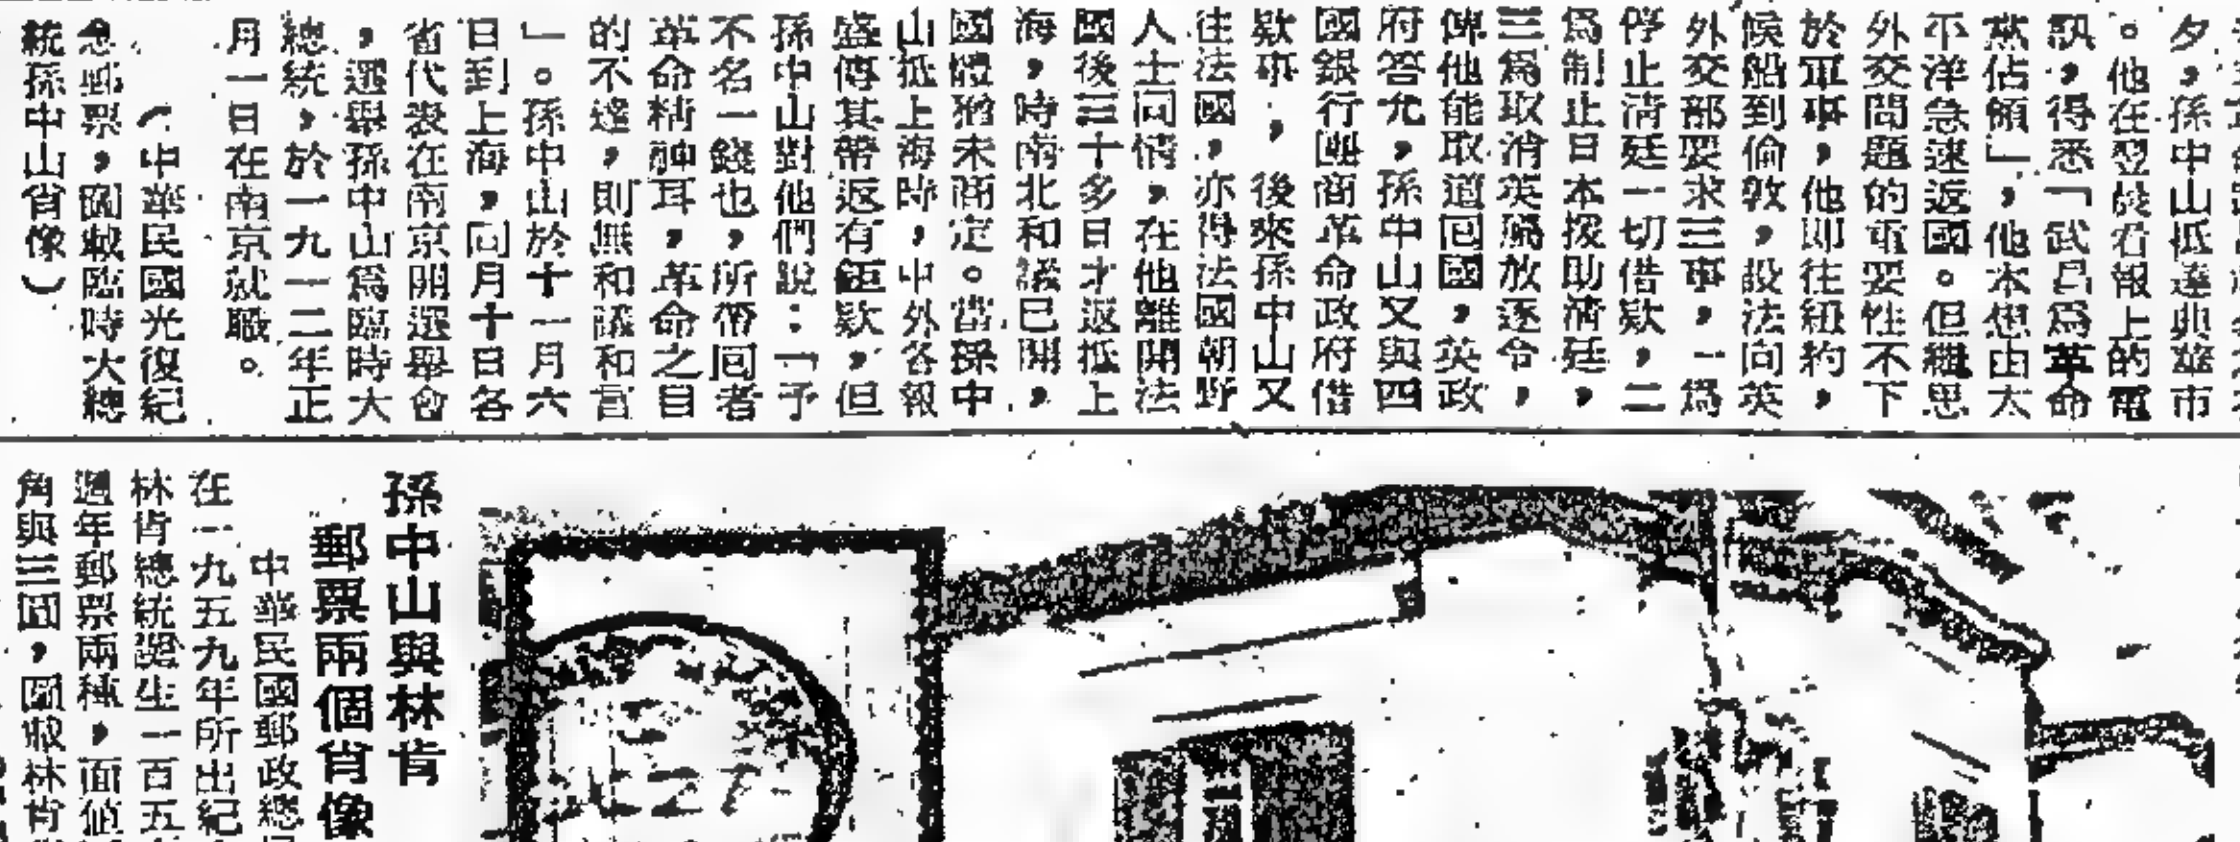 夕，孫中山抵達典華市
。他在翌晨看報上的電
訊，得悉「武昌爲革命
黨佔領」，他本想由太
平洋急速返國。但繼思
外交問題的重要性不下
於軍事，他即往紐約，
候船到倫敦，設法向英
外交部要求三事，一爲
停止清廷一切借欵，二
爲制止日本援助清廷，
三爲取消英屬放逐令，
俾他能取道囘國，英政
府答允，孫中山又與四
國銀行團商革命政府借
欵事，後來孫中山又
往法國，亦得法國朝野
人士同情，在他離開法
國後三十多日才返抵上
海，時南北和議已開，
國體猶未商定。當孫中
山抵上海時，中外各報
盛傳其帶返有鉅欵，但
孫中山對他們說：「予
不名一錢也，所帶囘者
革命精神耳，革命之目
的不達，則無和議和言
」。孫中山於十一月六
日到上海，同月十日各
省代表在南京開選舉會
，選舉孫中山爲臨時大
總統，於一九一二年正
月一日在南京就職。
（中華民國光復紀
念郵票，圖載臨時大總
統孫中山肖像）
孫中山與林肯
郵票兩個肖像
中華民國郵政總
在一九五九年所出紀
林肯總統誕生一百五
週年郵票兩種，面値
角與三圓，圖載林肯